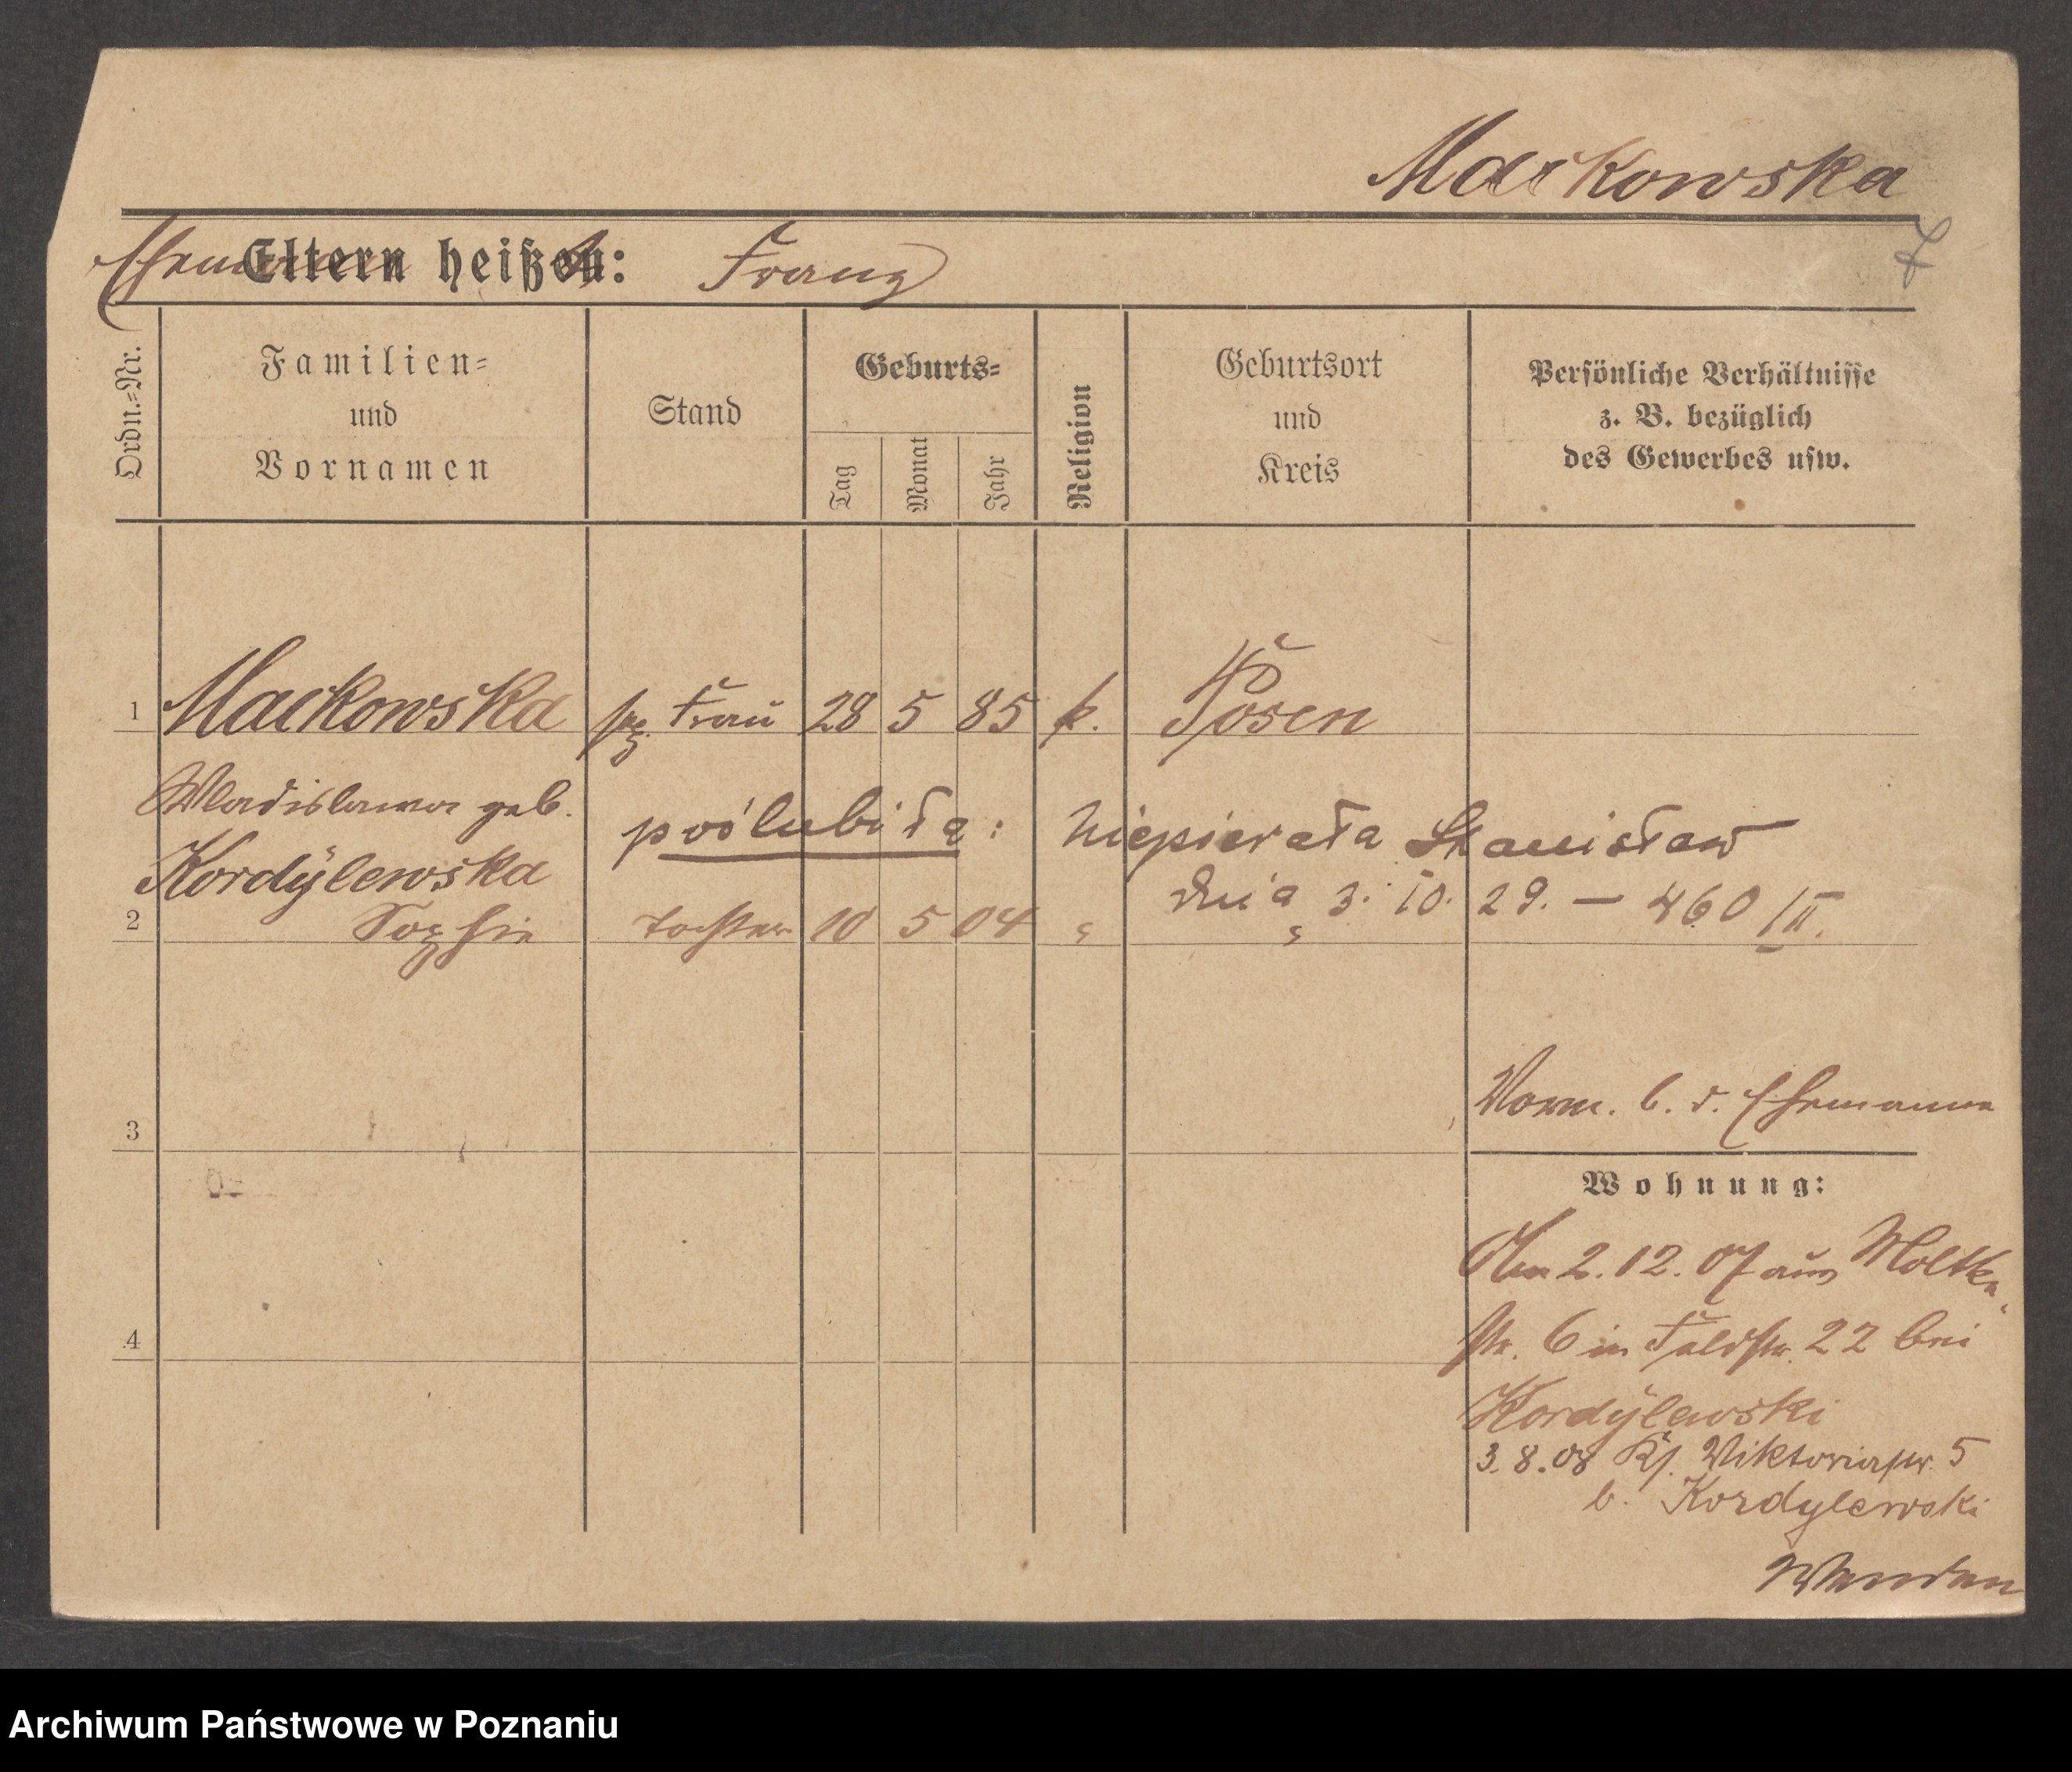 Mackowska
Ehemann Eltern heißen: Franz
7
Ordn.-Nr.
Familien-
und
Vornamen
Stand
Geburts-
Tag
Monat
Jahr
Religion
Geburtsort
und
Kreis
Persönliche Verhältnisse
z. B. bezüglich
des Gewerbes usw.
1 Mackowska Frau 28 5 85 k. Posen
Wladislawa geb.
Kordylewska
poślubiła: Niepierała Stanisław
dnia 3. 10. 29. — 460/II.
2 Sophie Tochter 10 5 04 " "
3
Verm. b. d. Ehemann
Wohnung:
Am 2.12.07 aus Moltke-
str. 6 in Feldstr. 22 bei
Kordylewski
3.8.08 Viktoriastr. 5
b. Kordylewski
Wenden
4
Archiwum Państwowe w Poznaniu